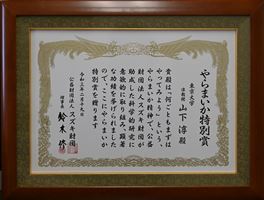 やらまいか特別賞
東京大学
准教授 山下 淳 殿
貴殿は「何ごともまずは
やってみよう」という、
やらまいか精神で、公益
財団法人スズキ財団が
助成した科学的研究に
意欲的に取り組み、顕著
な功績を挙げられました
ので、ここにやらまいか
特別賞を贈ります
令和三年二月十九日
公益財団法人スズキ財団
理事長 鈴木 修